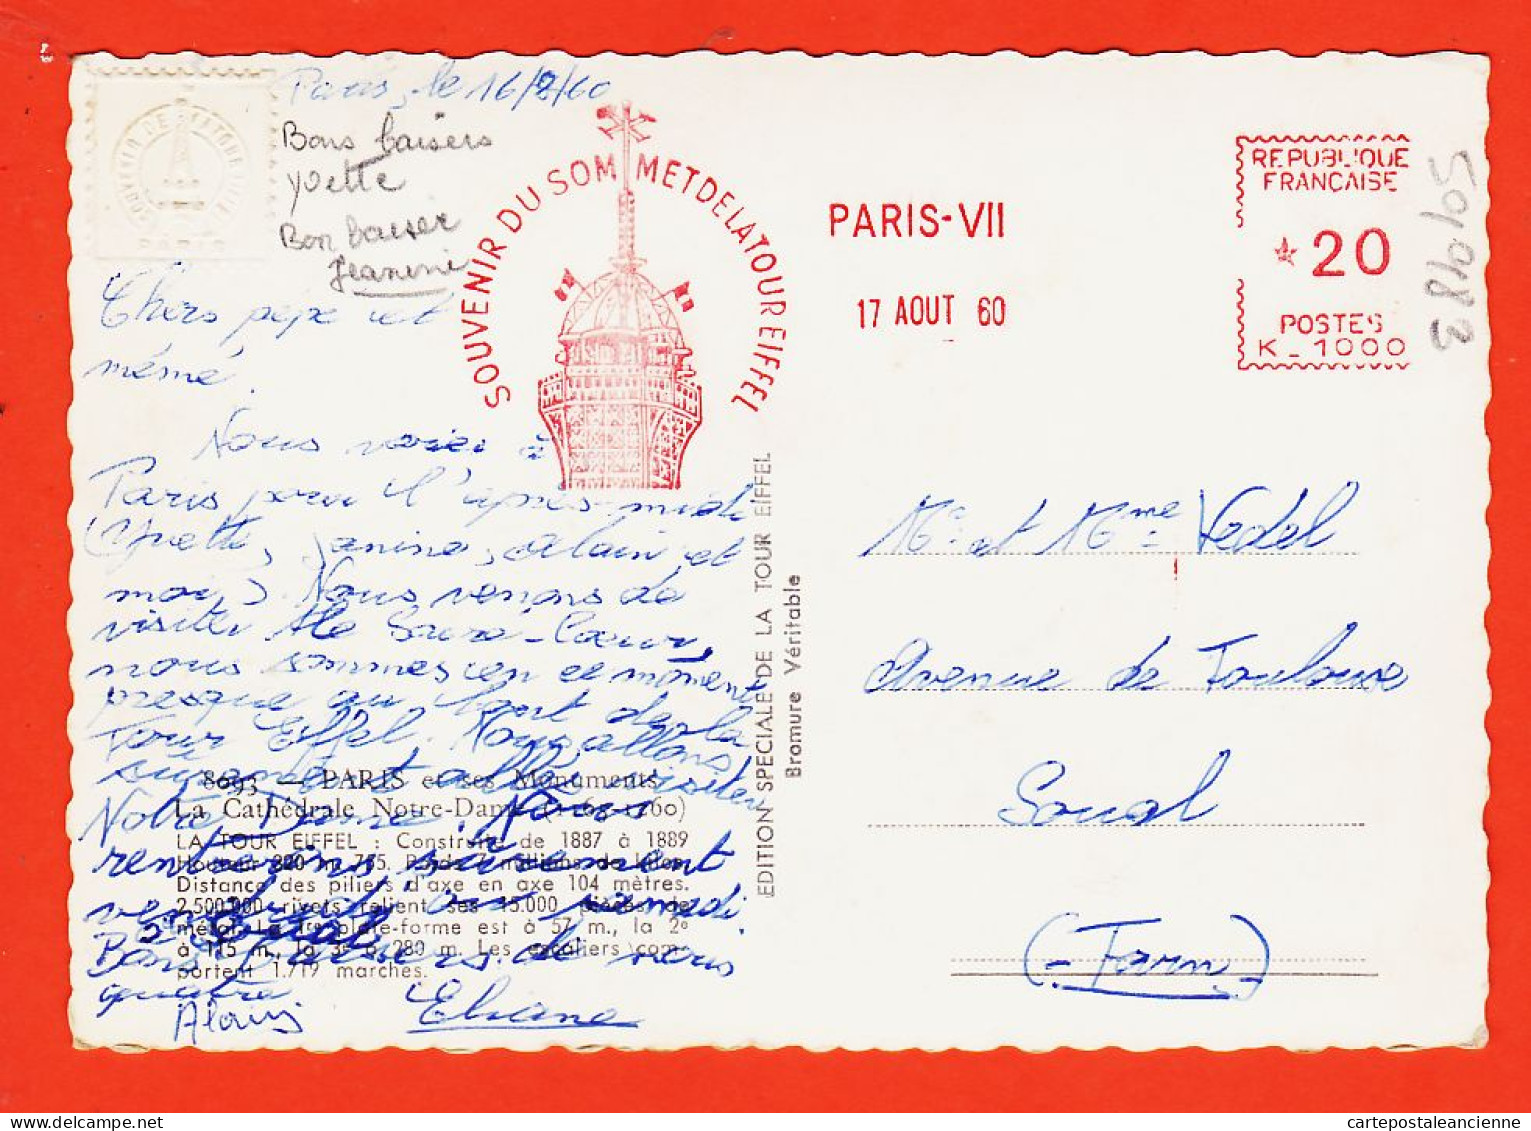 Paris, le 16/8/60
Bons baisers
Yvette
Bon baiser
Jeanine
Chers pépé et
mémé.
Nous voici à
Paris pour l'après-midi
(Yvette, Janine, Alain et
moi). Nous venons de
visiter le Sacré-Coeur,
nous sommes en ce moment
presque au haut de la
Tour Eiffel. Nous allons
allez visiter
Notre Dame. Nous
rentrerons sûrement
vendredi ou samedi
à Soual
Bons baisers de nous
quatre
Alain
Eliane
SOUVENIR DE LA TOUR EIFFEL
PARIS
SOUVENIR DU SOMMET DE LA TOUR EIFFEL
PARIS-VII
17 AOUT 60
REPUBLIQUE
FRANCAISE
20
POSTES
K-1000
501083
8693 — PARIS et ses Monuments
La Cathédrale Notre-Dame (1163-1260)
LA TOUR EIFFEL : Construite de 1887 à 1889
Hauteur 300 m. 755. Poids 7 millions de kilos.
Distance des piliers d'axe en axe 104 mètres.
2.500.000 rivets relient ses 15.000 pièces de
métal. La 1re plate-forme est à 57 m., la 2e
à 115 m., la 3e à 280 m. Les escaliers com-
portent 1.719 marches.
EDITION SPECIALE DE LA TOUR EIFFEL
Bromure Véritable
Mr et Mme Vedel
Avenue de Toulouse
Soual
(-Tarn)
cartepostaleancienne.com